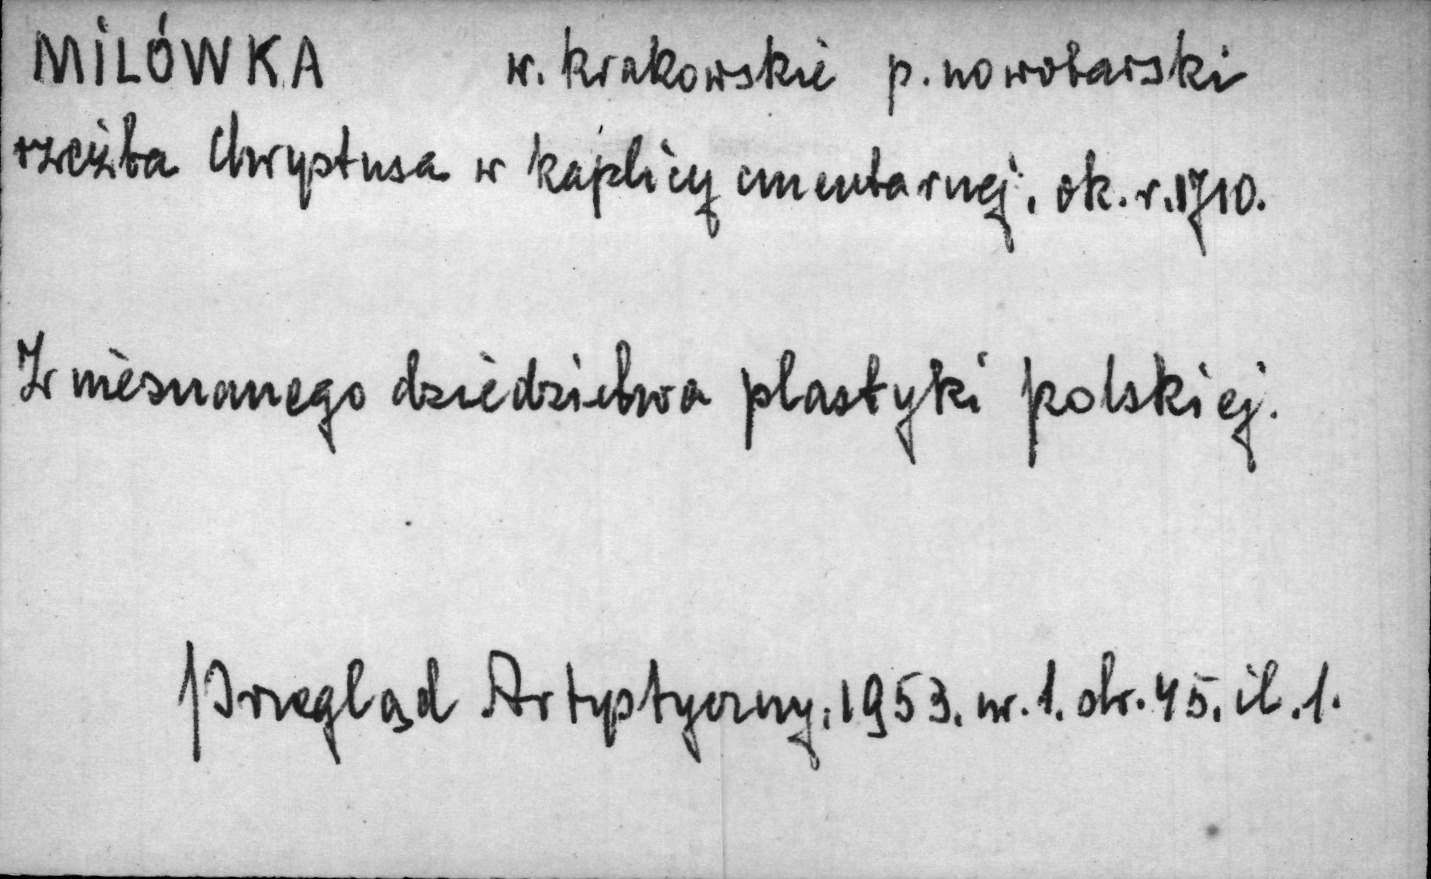 MILÓWKA w. krakowskie p. nowotarski
rzeźba Chrystusa w kaplicy cmentarnej, ok. r. 1710.
Z nieznanego dziedzictwa plastyki polskiej.
Przegląd Artystyczny, 1953. nr. 1. str. 45. il. 1.